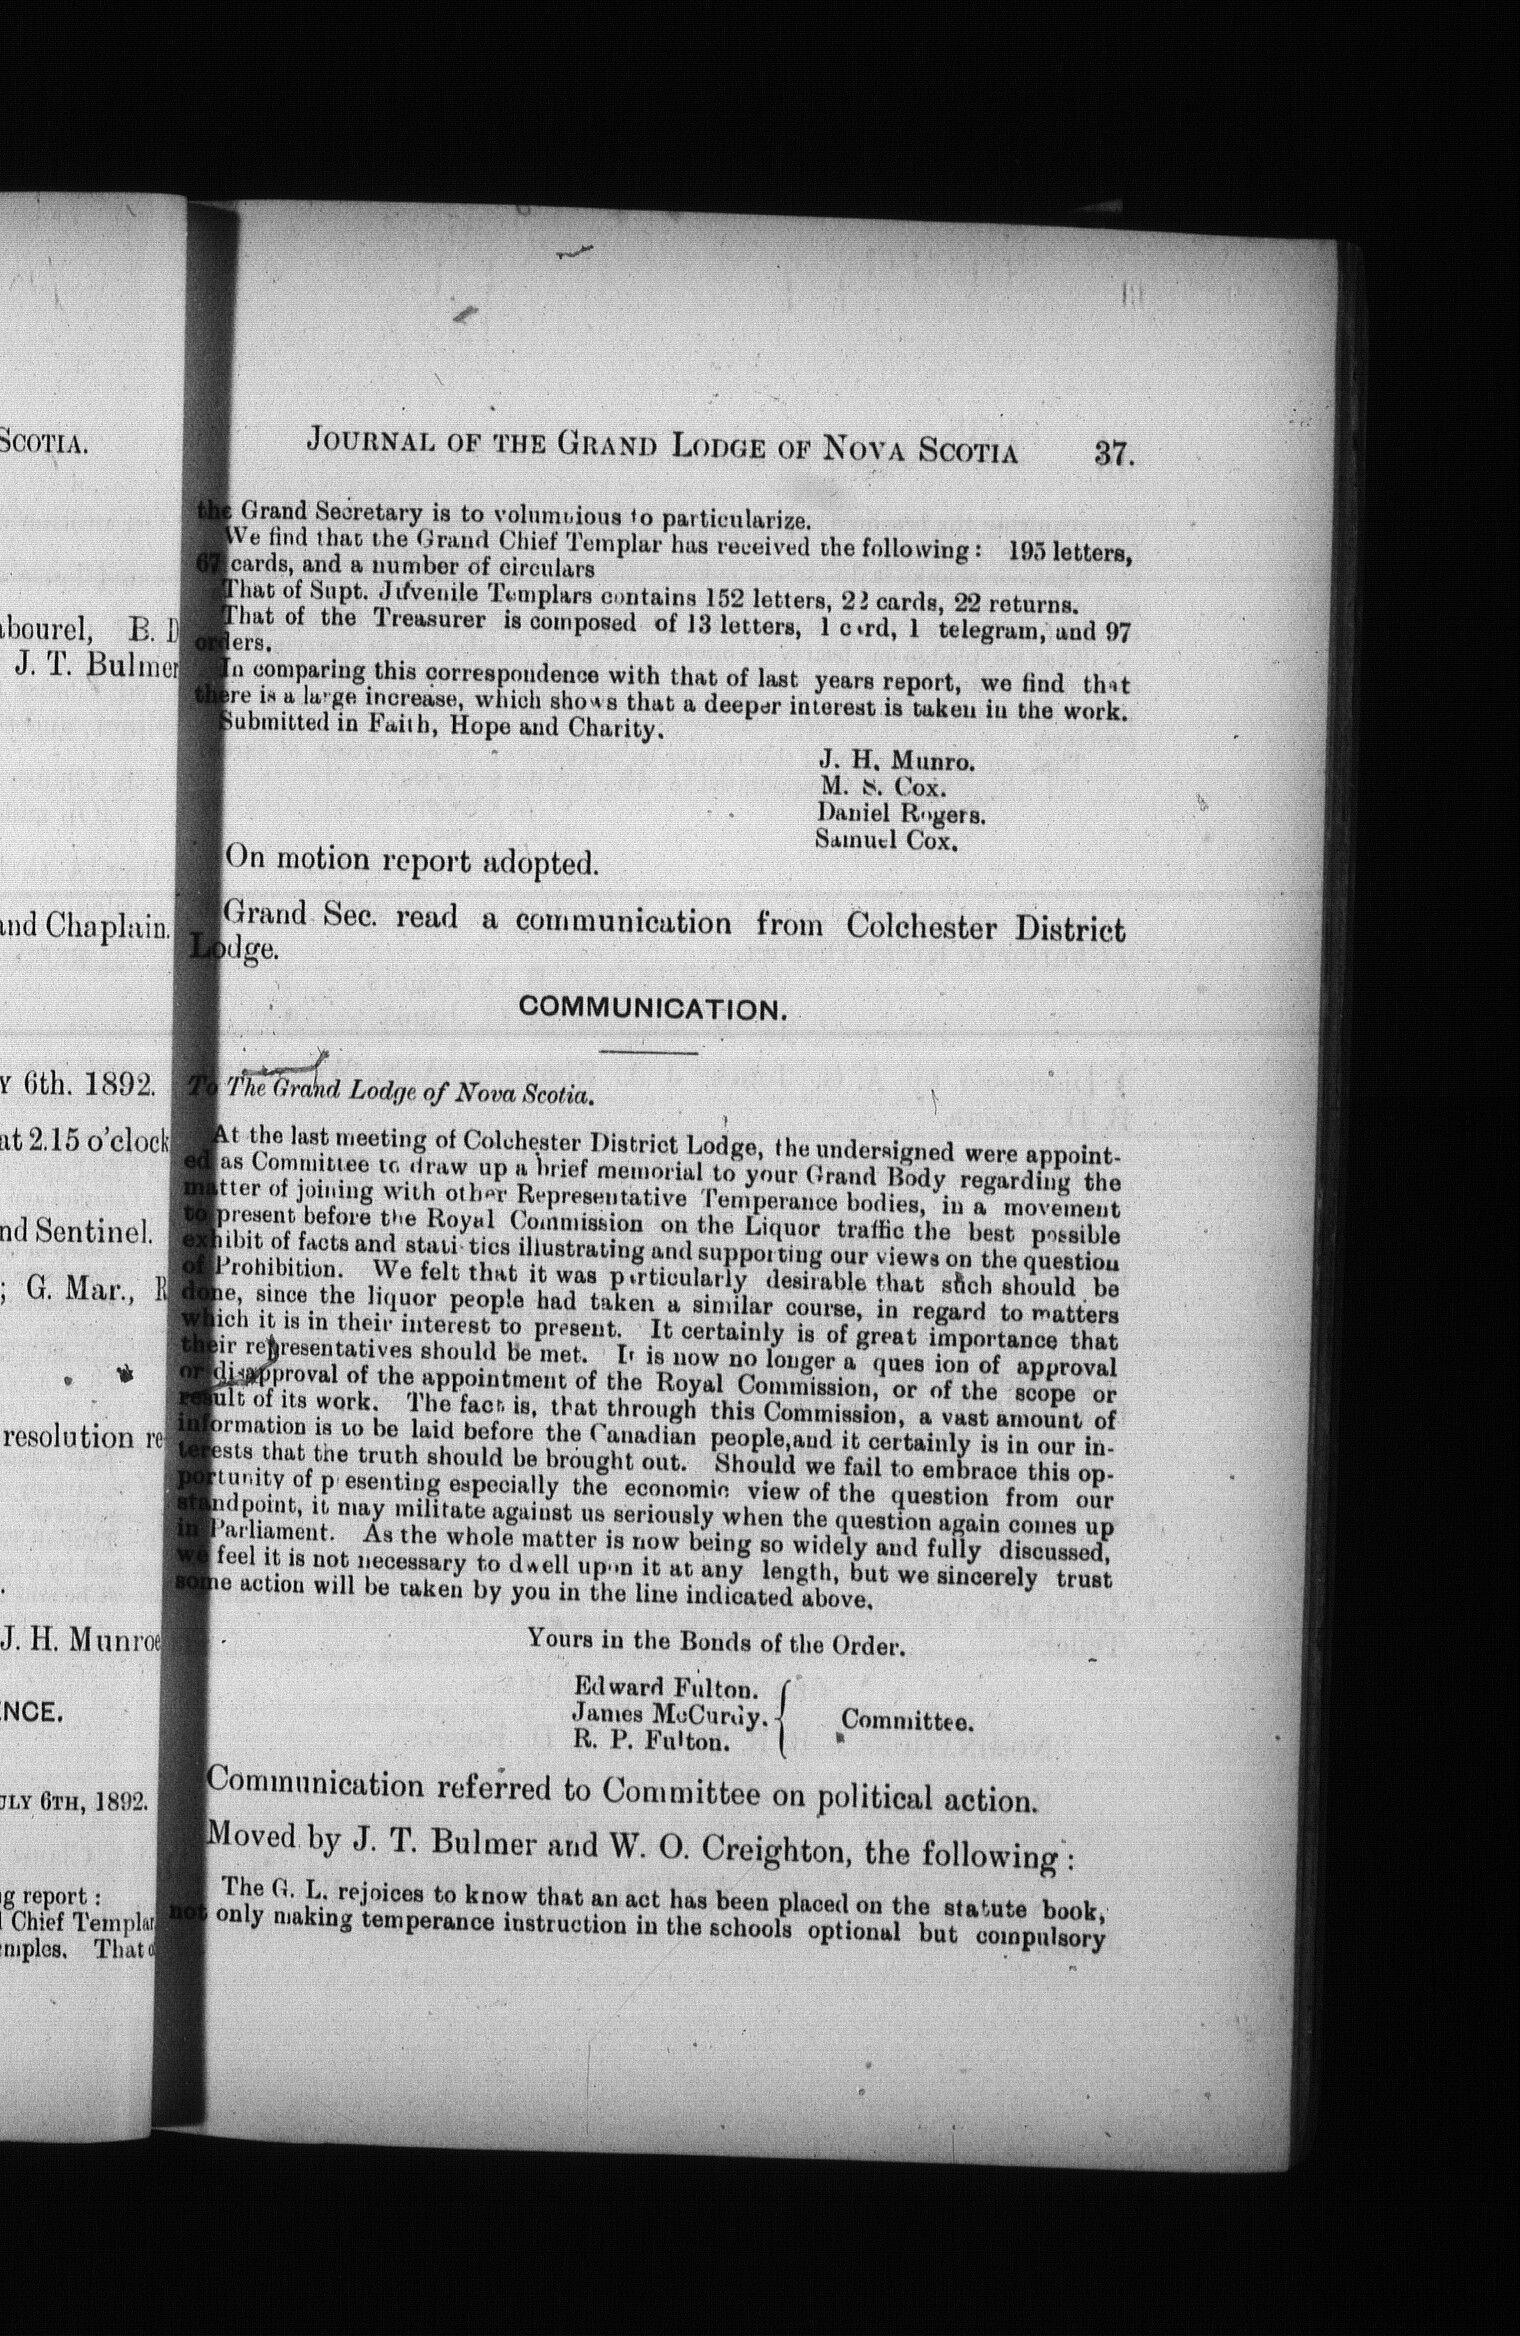 SCOTIA.
J. T. Bulmer
and Chaplain.
6th. 1892.
at 2.15 o'clock
nd Sentinel.
; G. Mar., R
resolution re-
J. H. Munroe
ENCE.
JULY 6TH, 1892.
g report :
Chief Templar
mples. That
JOURNAL OF THE GRAND LODGE OF NOVA SCOTIA 37.
the Grand Secretary is to volumnious to particularize.
We find that the Grand Chief Templar has received the following: 195 letters,
67 cards, and a number of circulars
That of Supt. Juvenile Templars contains 152 letters, 22 cards, 22 returns.
That of the Treasurer is composed of 13 letters, 1 card, 1 telegram, and 97
orders.
In comparing this correspondence with that of last years report, we find that
there is a large increase, which shows that a deeper interest is taken in the work.
Submitted in Faith, Hope and Charity.
J. H. Munro.
M. S. Cox.
Daniel Rogers.
Samuel Cox.
On motion report adopted.
Grand Sec. read a communication from Colchester District
Lodge.
COMMUNICATION.
To The Grand Lodge of Nova Scotia.
At the last meeting of Colchester District Lodge, the undersigned were appoint-
ed as Committee to draw up a brief memorial to your Grand Body regarding the
matter of joining with other Representative Temperance bodies, in a movement
to present before the Royal Commission on the Liquor traffic the best possible
exhibit of facts and statistics illustrating and supporting our views on the question
of Prohibition. We felt that it was particularly desirable that such should be
done, since the liquor people had taken a similar course, in regard to matters
which it is in their interest to present. It certainly is of great importance that
their representatives should be met. It is now no longer a ques ion of approval
or disapproval of the appointment of the Royal Commission, or of the scope or
result of its work. The fact is, that through this Commission, a vast amount of
information is to be laid before the Canadian people,and it certainly is in our in-
terests that the truth should be brought out. Should we fail to embrace this op-
portunity of presenting especially the economic view of the question from our
standpoint, it may militate against us seriously when the question again comes up
in Parliament. As the whole matter is now being so widely and fully discussed,
we feel it is not necessary to dwell upon it at any length, but we sincerely trust
some action will be taken by you in the line indicated above.
Yours in the Bonds of the Order.
Edward Fulton.
James McCurdy. Committee.
R. P. Fulton.
Communication referred to Committee on political action.
Moved by J. T. Bulmer and W. O. Creighton, the following :
The G. L. rejoices to know that an act has been placed on the statute book,
not only making temperance instruction in the schools optional but compulsory